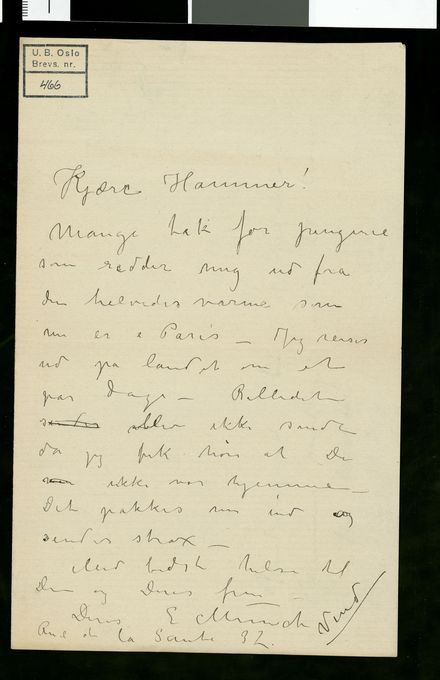 U. B. Oslo
Brevs. nr.
466
Kjære Hammer!
Mange tak for pengene
som redder mig ud fra
den helvedes varme som
nu er i Paris – Jeg reiser
ud på landet om et
par dage – Billedet
blev ikke sendt
da jeg fik høre at De
ikke var hjemme –
Det pakkes nu ind og
sendes strax –
Med bedste hilsen til
Dem og Deres frue –
Deres E Munch
Rue de la Santé 32.
Vend